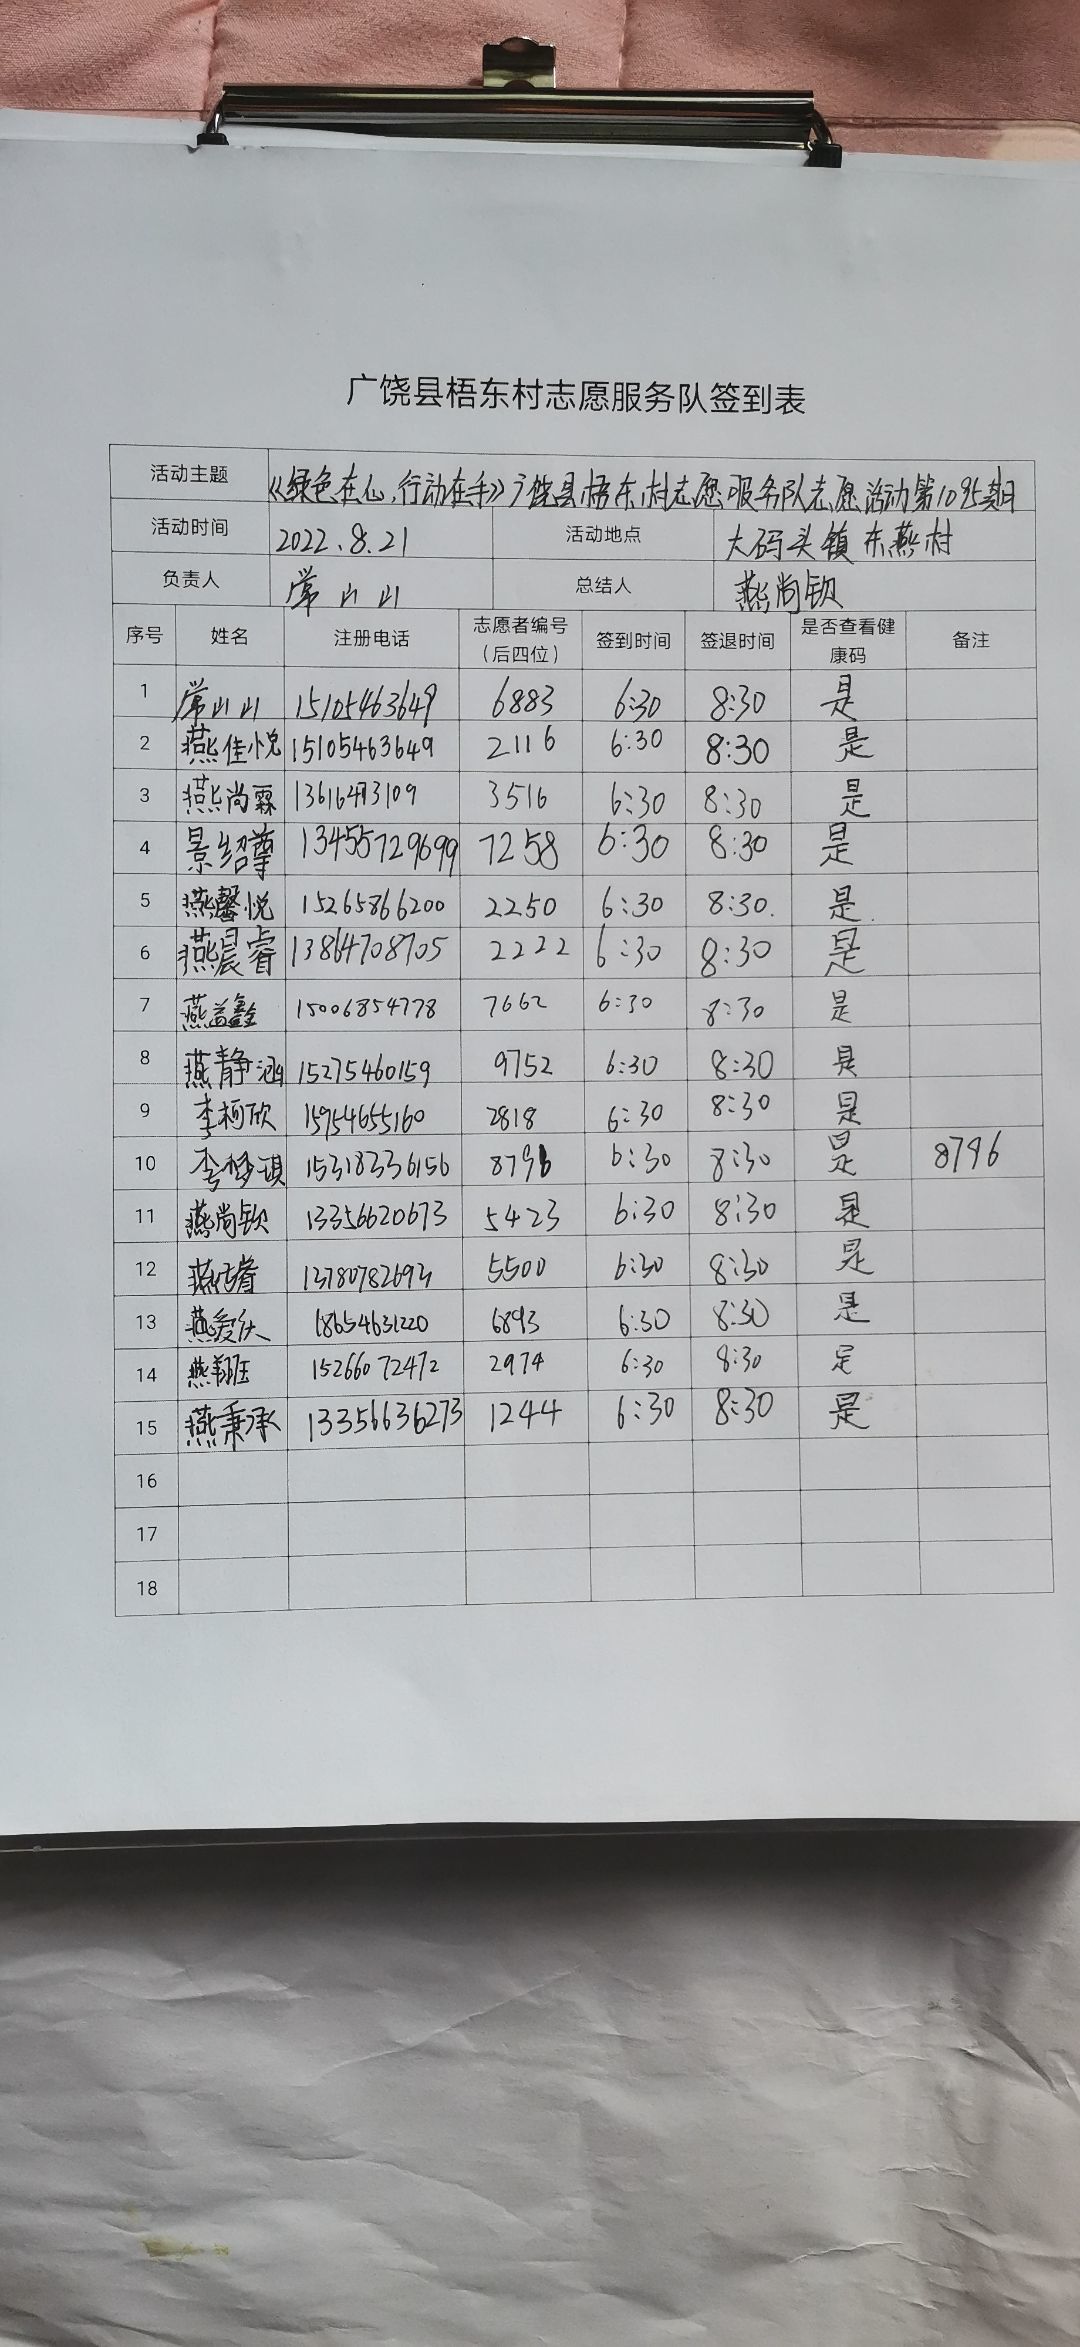 广饶县梧东村志愿服务队签到表
活动主题 《绿色在心,行动在手》广饶县梧东村志愿服务队志愿活动第1095期
活动时间 2022.8.21 活动地点 大码头镇东燕村
负责人 常山山 总结人 燕尚钦
序号 姓名 注册电话 志愿者编号（后四位） 签到时间 签退时间 是否查看健康码 备注
1 常山山 15105463649 6883 6:30 8:30 是
2 燕佳悦 15105463649 2116 6:30 8:30 是
3 燕尚霖 13616493109 3516 6:30 8:30 是
4 景绍尊 13455729699 7258 6:30 8:30 是
5 燕馨悦 15265866200 2250 6:30 8:30. 是.
6 燕晨睿 13864708705 2222 6:30 8:30 是
7 燕益鑫 15006854778 7662 6:30 8:30 是
8 燕静涵 15275460159 9752 6:30 8:30 是
9 李柯欣 15954655160 2818 6:30 8:30 是
10 李梦琪 15318336156 8796 6:30 8:30 是 8796
11 燕尚钦 13356620673 5423 6:30 8:30 是
12 燕睿 13780782693 5500 6:30 8:30 是
13 燕爱 18654631220 6893 6:30 8:30 是
14 燕翔 15266072472 2974 6:30 8:30 是
15 燕秉承 13356636273 1244 6:30 8:30 是
16
17
18